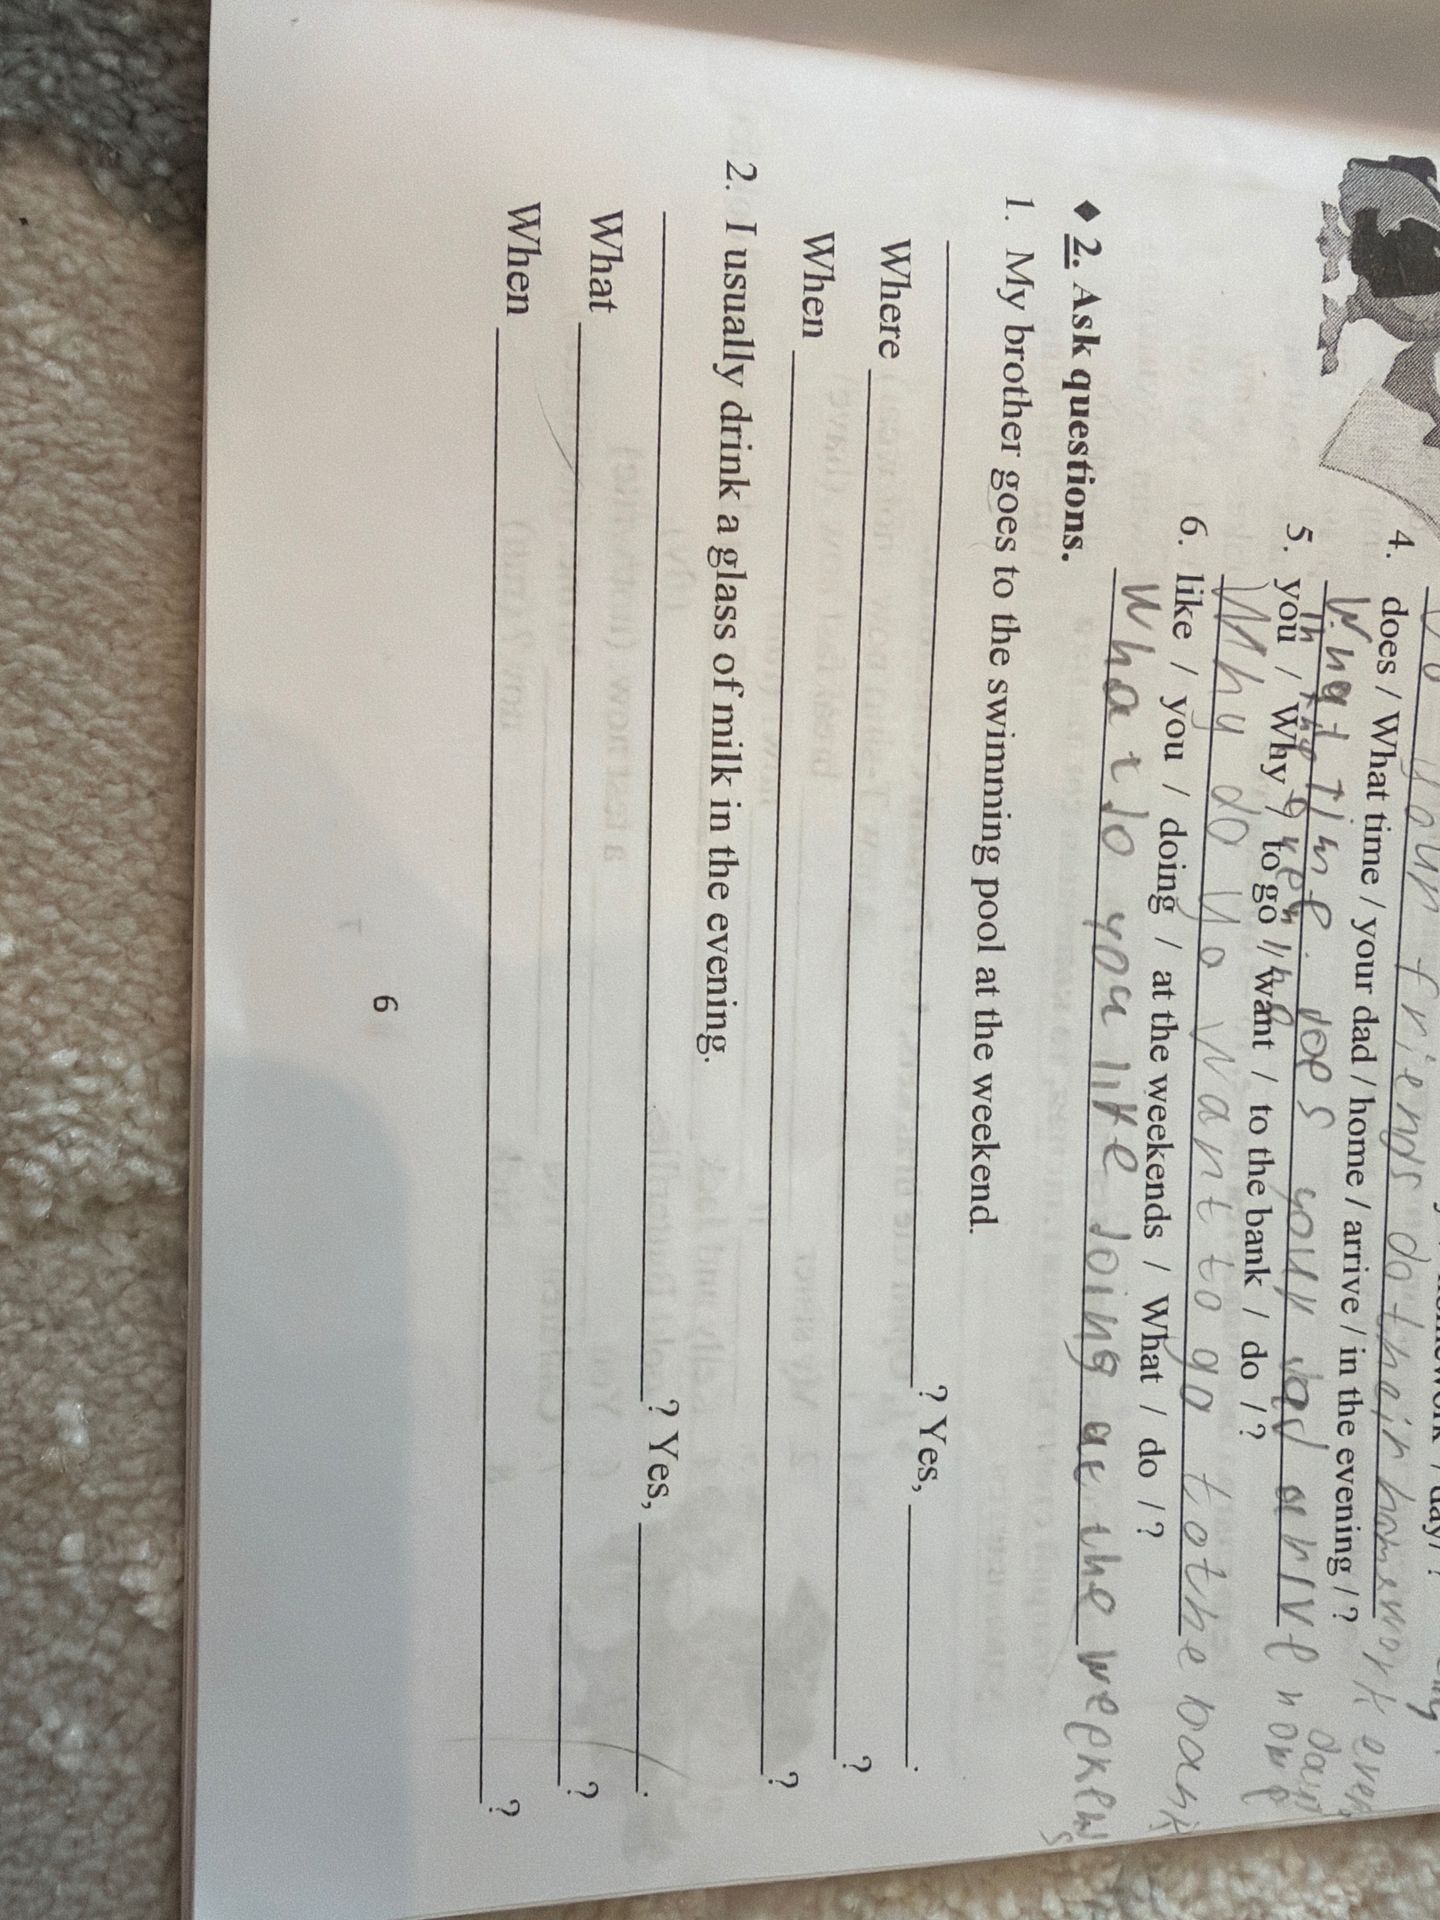 your friends do their homework every day
4. does / What time / your dad / home / arrive / in the evening / ?
What time does your dad arive home
in the evening
5. you / Why / to go / want / to the bank / do / ?
Why do yo want to go to the bank
6. like / you / doing / at the weekends / What / do / ?
What do you like doing at the weekends
◆ 2. Ask questions.
1. My brother goes to the swimming pool at the weekend.
? Yes, .
Where ?
When ?
2. I usually drink a glass of milk in the evening.
? Yes, .
What ?
When ?
6